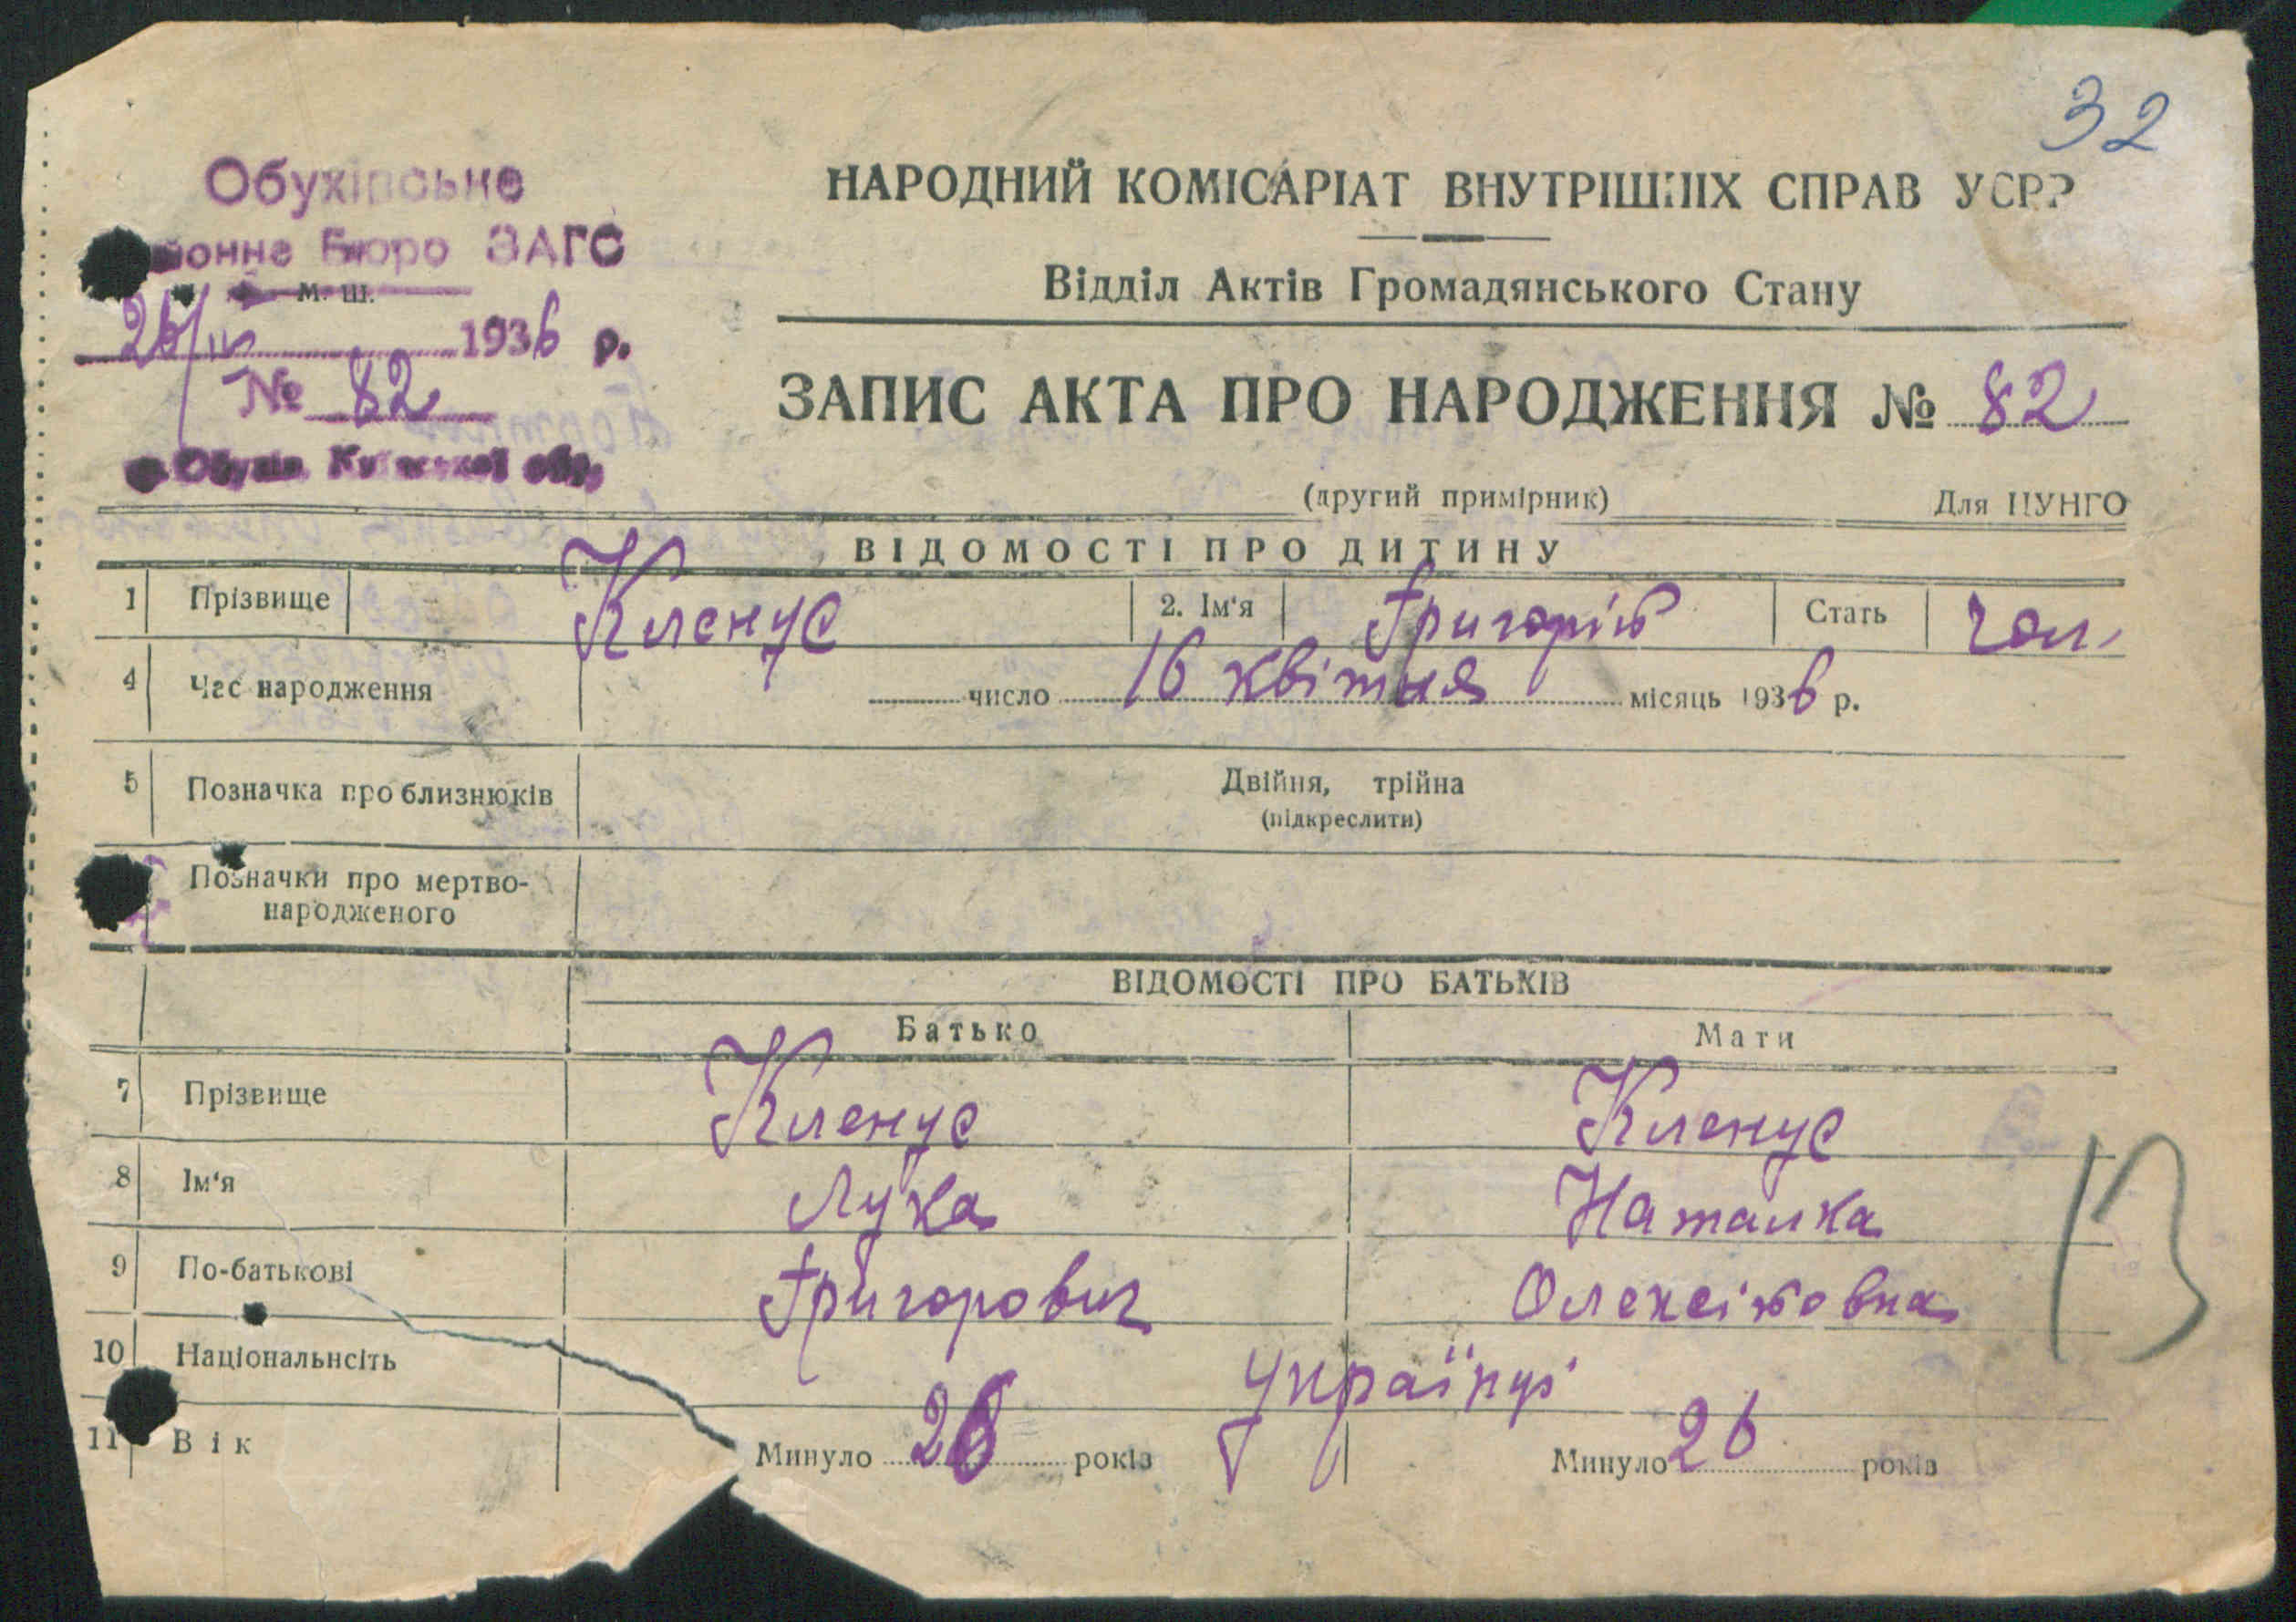 32
Обухівське
районне Бюро ЗАГС
м. ш.
1936 р.
№ 82
м. Обухів Київської обл.
НАРОДНИЙ КОМІСАРІАТ ВНУТРІШНІХ СПРАВ УСРР
Відділ Актів Громадянського Стану
ЗАПИС АКТА ПРО НАРОДЖЕННЯ № 82
(другий примірник) Для ЦУНГО
ВІДОМОСТІ ПРО ДИТИНУ
1 Прізвище Кленус 2. Ім'я Григорій Стать чол.
4 Час народження число 16 квітня місяць 1936 р.
5 Позначка про близнюків Двійня, трійна
(підкреслити)
Позначки про мертво-
народженого
ВІДОМОСТІ ПРО БАТЬКІВ
Батько Мати
7 Прізвище Кленус Кленус
8 Ім'я Лука Наталка
9 По-батькові Григорович Олексійовна
10 Національнсіть Українці
11 Вік Минуло 28 років Минуло 26 років
13